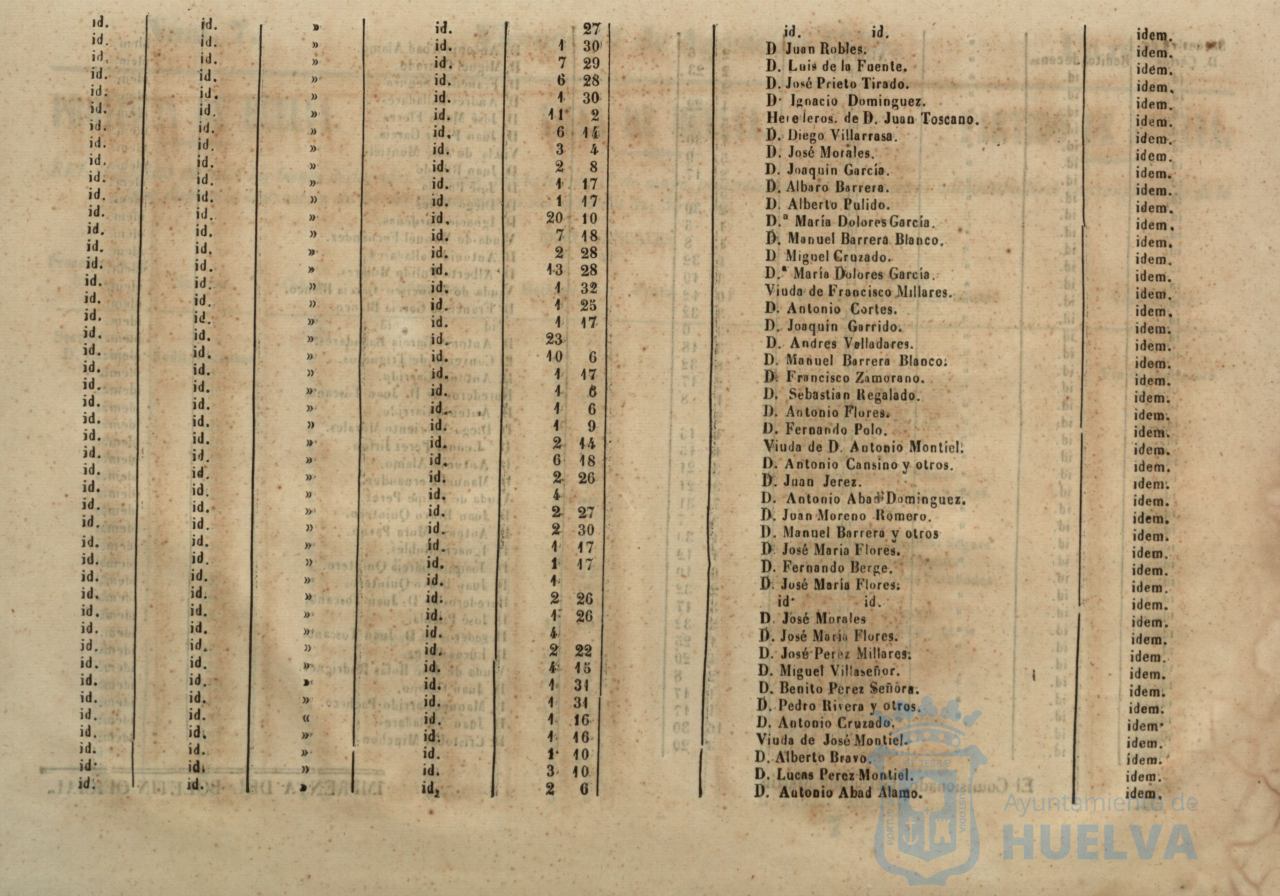 id. id. » id. 27 id. id. idem.
id. id. » id. 1 30 D Juan Robles. idem.
id. id. » id. 7 29 D. Luis de la Fuente. idem.
id. id. » id. 6 28 D. José Prieto Tirado. idem.
id. id. » id. 1 30 D. Ignacio Dominguez. idem.
id. id. » id. 11 2 Herederos. de D. Juan Toscano. idem.
id. id. » id. 6 14 D. Diego Villarrasa. idem.
id. id. » id. 3 4 D. José Morales. idem.
id. id. » id. 2 8 D. Joaquin García. idem.
id. id. » id. 1 17 D. Albaro Barrera. idem.
id. id. » id. 1 17 D. Alberto Pulido. idem.
id. id. » id. 20 10 D.ª María Dolores García. idem.
id. id. » id. 7 18 D. Manuel Barrera Blanco. idem.
id. id. » id. 2 28 D Miguel Cruzado. idem.
id. id. » id. 13 28 D.ª María Dolores García. idem.
id. id. » id. 1 32 Viuda de Francisco Millares. idem.
id. id. » id. 1 25 D. Antonio Cortes. idem.
id. id. » id. 1 17 D. Joaquin Garrido. idem.
id. id. » id. 23 D. Andres Valladares. idem.
id. id. » id. 10 6 D. Manuel Barrera Blanco. idem.
id. id. » id. 1 17 D. Francisco Zamorano. idem.
id. id. » id. 1 6 D. Sebastian Regalado. idem.
id. id. » id. 1 6 D. Antonio Flores. idem.
id. id. » id. 1 9 D. Fernando Polo. idem.
id. id. » id. 2 14 Viuda de D. Antonio Montiel. idem.
id. id. » id. 6 18 D. Antonio Cansino y otros. idem.
id. id. » id. 2 26 D. Juan Jerez. idem.
id. id. » id. 4 D. Antonio Abad Dominguez. idem.
id. id. » id. 2 27 D. Juan Moreno Romero. idem.
id. id. » id. 2 30 D. Manuel Barrera y otros idem.
id. id. » id. 1 17 D. José Maria Flores. idem.
id. id. » id. 1 17 D. Fernando Berge. idem.
id. id. » id. 1 D. José María Flores. idem.
id. id. » id. 2 26 id. id. idem.
id. id. » id. 1 26 D. José Morales idem.
id. id. » id. 4 D. José Maria Flores. idem.
id. id. » id. 2 22 D. José Perez Millares. idem.
id. id. » id. 4 15 D. Miguel Villaseñor. idem.
id. id. » id. 1 31 D. Benito Perez Señora. idem.
id. id. » id. 1 31 D. Pedro Rivera y otros. idem.
id. id. « id. 1 16 D. Antonio Cruzado. idem.
id. id. » id. 1 16 Viuda de José Montiel. idem.
id. id. » id. 1 10 D. Alberto Bravo. idem.
id. id. » id. 3 10 D. Lucas Perez Montiel. idem.
id. id. » id. 2 6 D. Antonio Abad Alamo. idem.
Ayuntamiento de
HUELVA